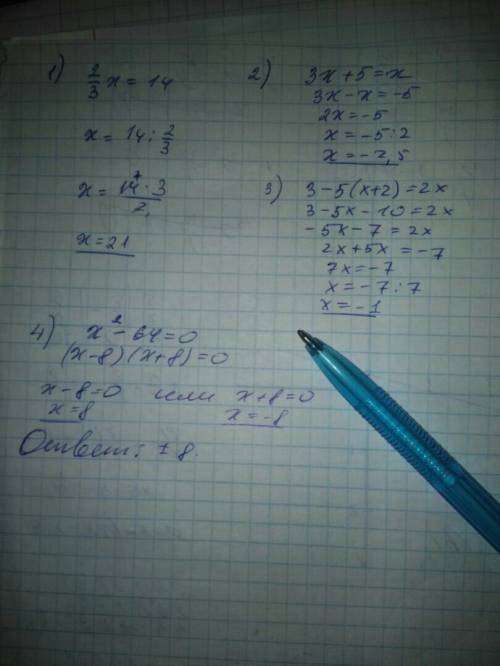 1) 2/3 x = 14
x = 14 : 2/3
x = 14 · 3 / 2
x = 21
2) 3x + 5 = x
3x - x = -5
2x = -5
x = -5 : 2
x = -2,5
3) 3 - 5(x+2) = 2x
3 - 5x - 10 = 2x
-5x - 7 = 2x
2x + 5x = -7
7x = -7
x = -7 : 7
x = -1
4) x² - 64 = 0
(x-8)(x+8) = 0
x - 8 = 0 или x + 8 = 0
x = 8 x = -8
Ответ: ± 8.